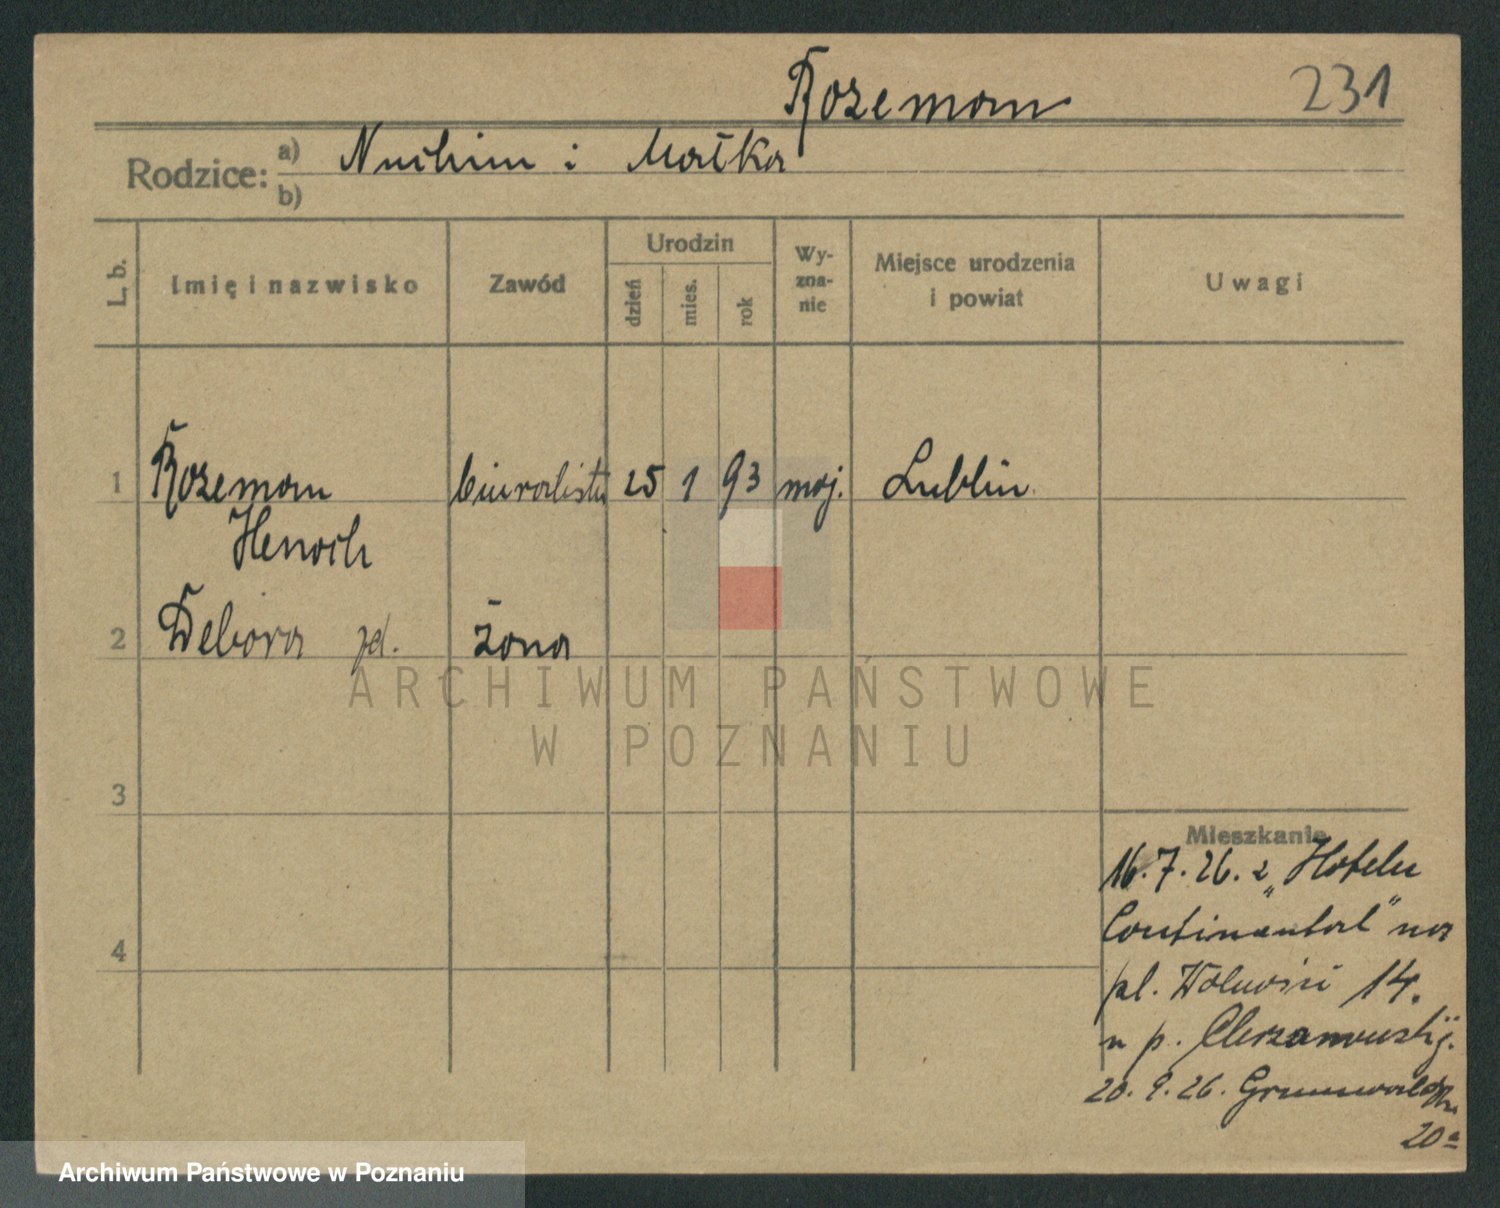 Rozeman 231
Rodzice: a) Nuchim i Małka
b)
L. b. Imię i nazwisko Zawód Urodzin dzień mies. rok Wy-zna-nie Miejsce urodzenia i powiat Uwagi
1 Rozeman biuralista 25 1 93 moj. Lublin
Henoch
2 Debora żona
3
4
Mieszkanie
16.7.26. z „Hotelu
Continental" na
pl. Wolności 14.
u p.
20.9.26. Grunwaldzka
20a
ARCHIWUM PAŃSTWOWE
W POZNANIU
Archiwum Państwowe w Poznaniu